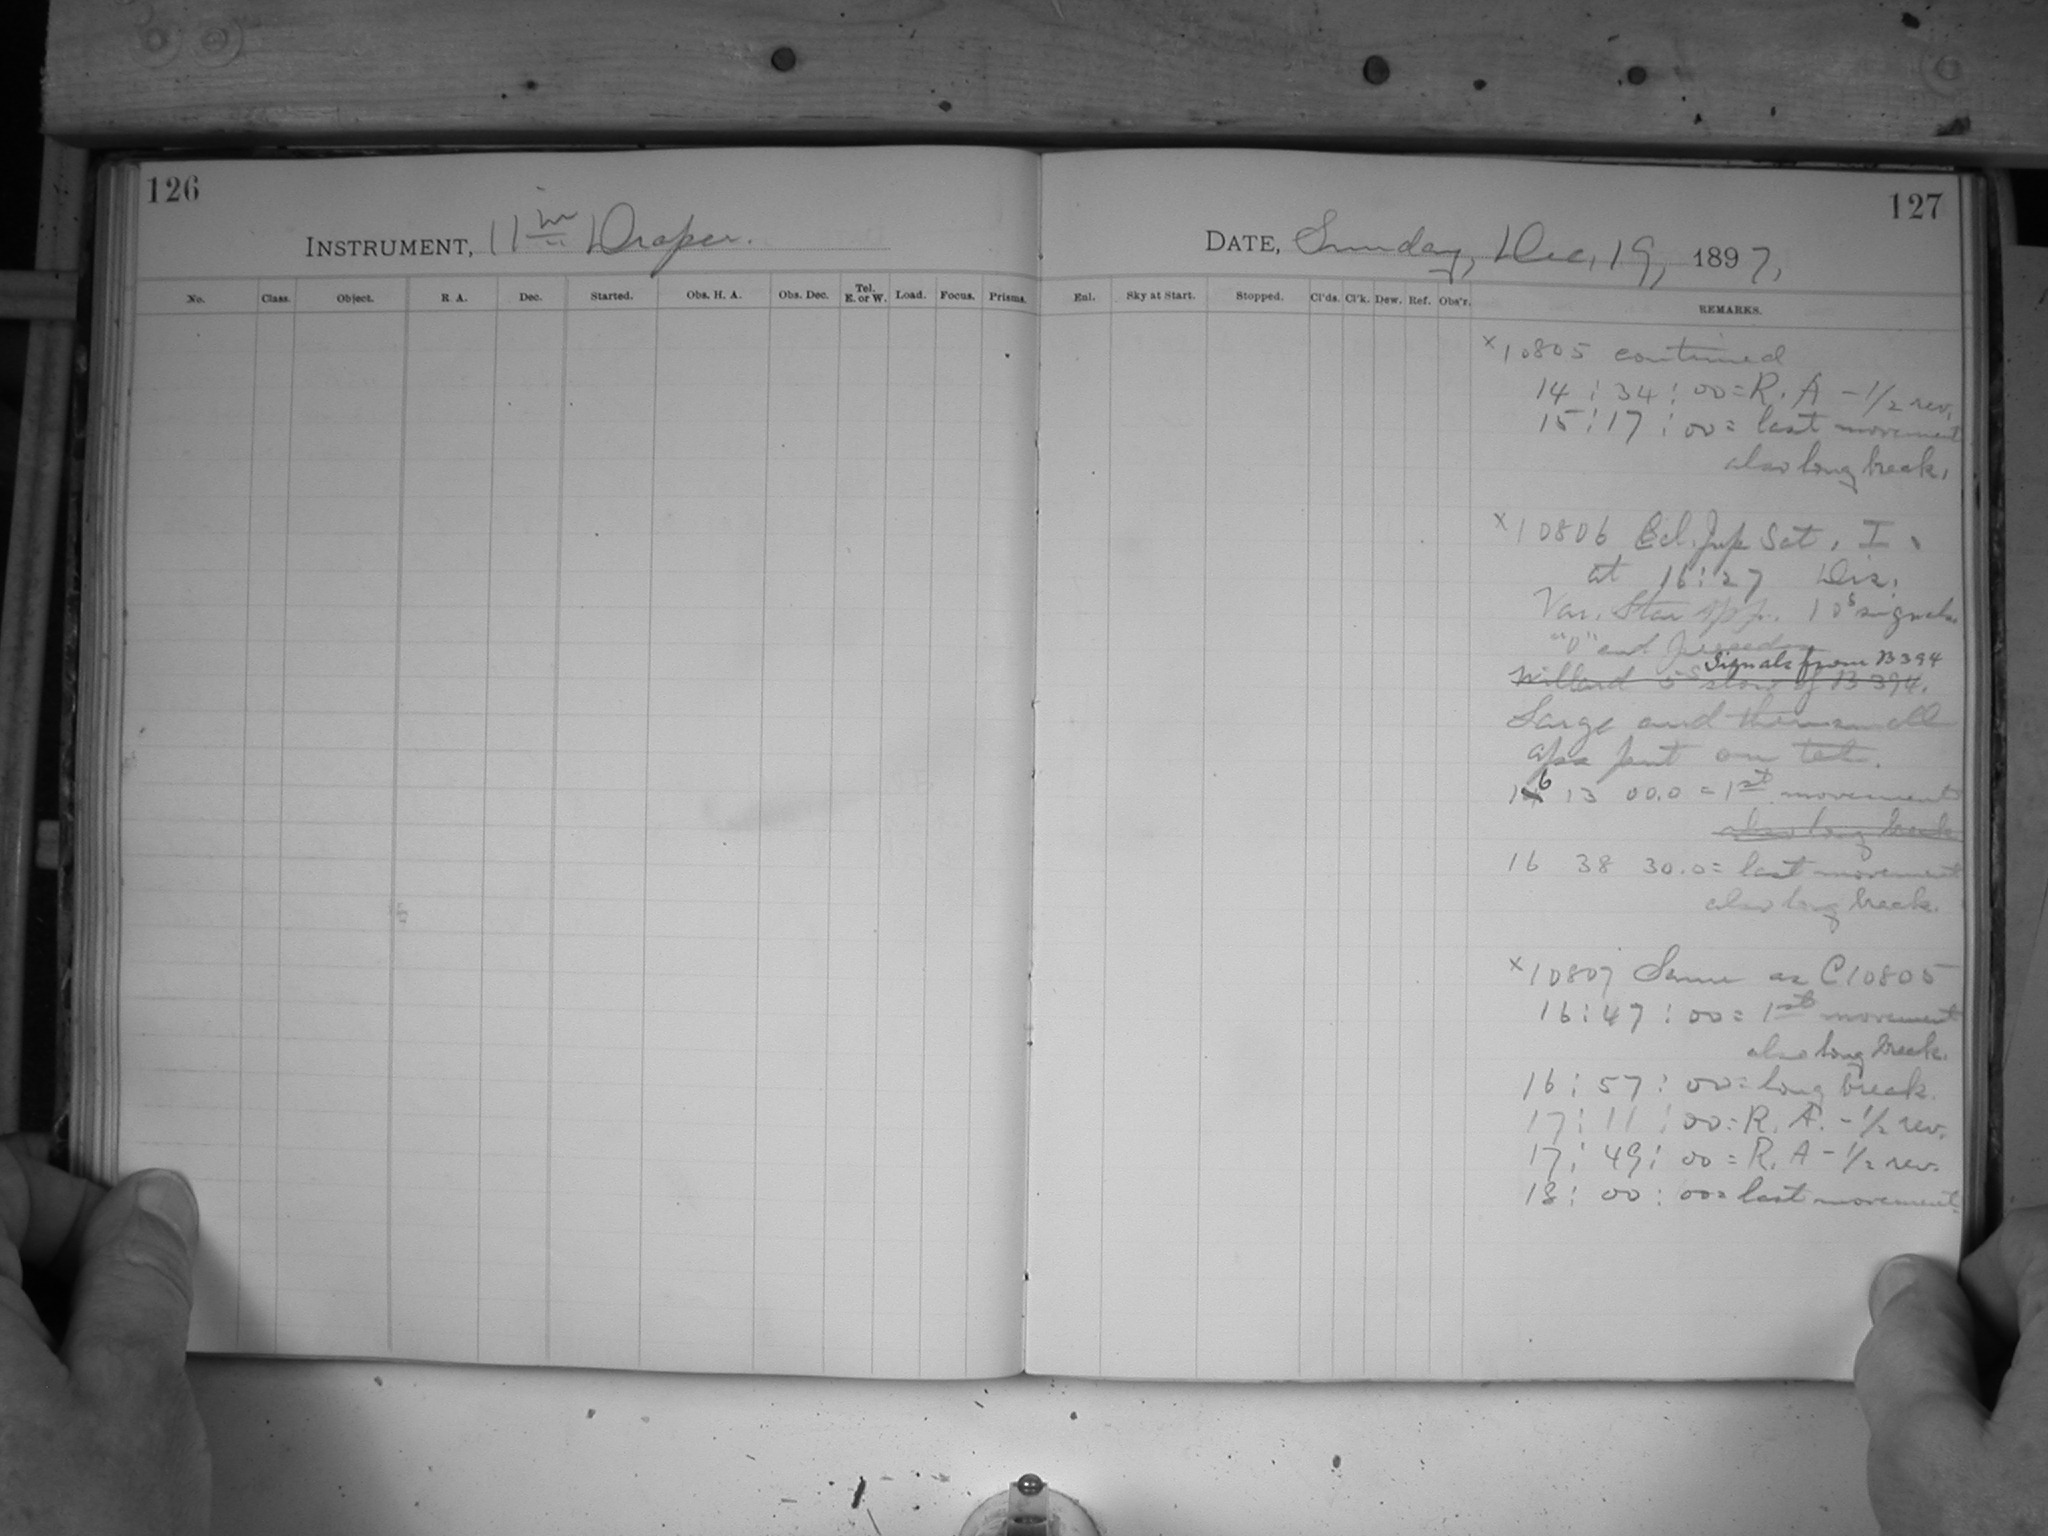 126
INSTRUMENT, 11 in Draper.
No. Class. Object. R A. Dec. Started. Obs. H. A. Obs. Dec. Tel. E. or W. Load. Focus. Prisms.
127
DATE, Sunday, Dec, 19, 1897,
Enl. Sky at Start. Stopped. Cl'ds. Cl'k. Dew. Ref. Obs'r. REMARKS.
x 10805 continued
14 : 34 : 00 = R. A - 1/2 rev.
15 : 17 : 00 = last movement
also long break,
x 10806 Ecl. Jup Sat, I.
at 16 : 27 Dis.
Var. Star app. 10s signals
"0" end
Signals from B394
Willard 5s slow of B 394.
Large and then small
aps put on tel.
16 13 00.0 = 1st movement
also long break
16 38 30.0 = last movement
also long break.
x 10807 Same as C10805
16 : 47 : 00 = 1st movement
also long break.
16 : 57 : 00 = long break.
17 : 11 : 00 = R. A. - 1/2 rev.
17 : 49 : 00 = R. A - 1/2 rev.
18 : 00 : 00 = last movement.